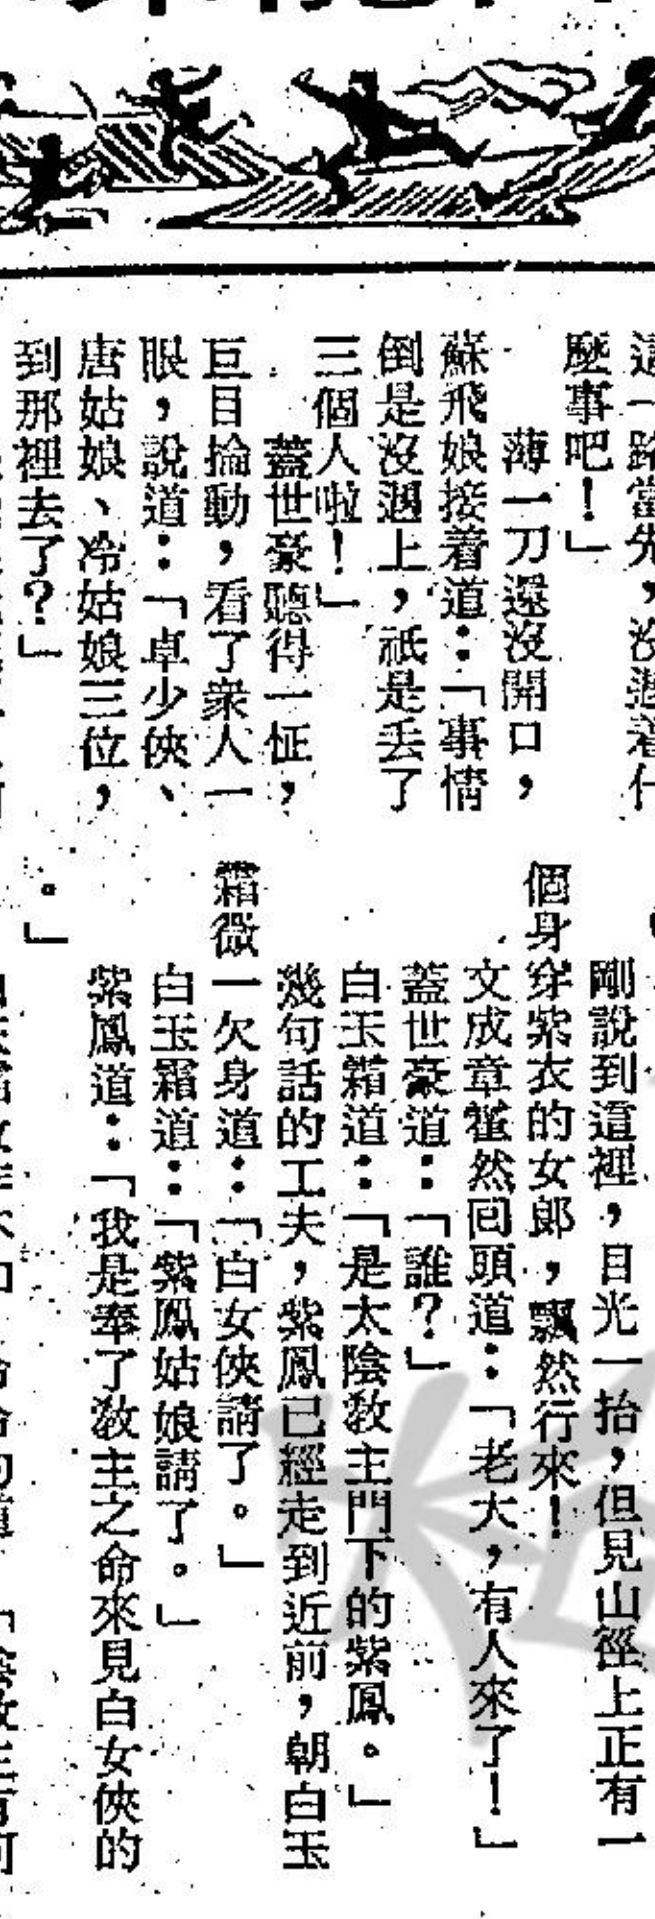 這一路當先，沒遇着什
麼事吧！」
薄一刀還沒開口，
蘇飛娘接着道：「事情
倒是沒遇上，祇是丢了
三個人啦！」
蓋世豪聽得一怔，
巨目掄動，看了衆人一
眼，說道：「卓少俠、
唐姑娘、冷姑娘三位，
到那裡去了？」
剛說到這裡，目光一抬，但見山徑上正有一
個身穿紫衣的女郎，飄然行來！
文成章霍然回頭道：「老大，有人來了！」
蓋世豪道：「誰？」
白玉霜道：「是太陰教主門下的紫鳳。」
幾句話的工夫，紫鳳已經走到近前，朝白玉
霜微一欠身道：「白女俠請了。」
白玉霜道：「紫鳳姑娘請了。」
紫鳳道：「我是奉了教主之命來見白女俠的
。」